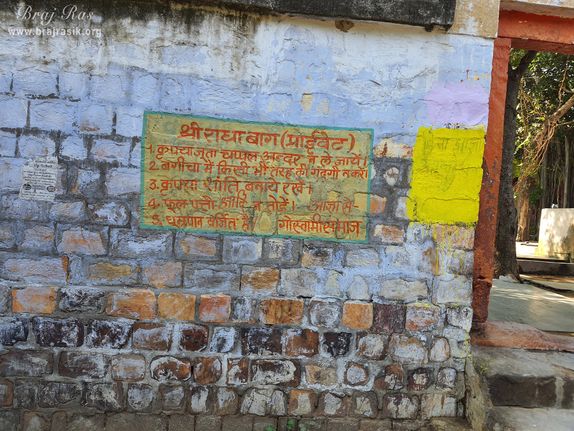 Braj Ras
www.brajrasik.org
श्री राधा बाग (प्राईवेट)
1. कृप्या जूता चप्पल अन्दर न ले जायें।
2. बगीचा में किसी भी तरह की गंदगी न करें।
3. कृप्या शांति बनाये रखें।
4. फूल पत्ती आदि न तोड़ें। आज्ञा से-
5. धूम्रपान वर्जित है। गोस्वामी समाज